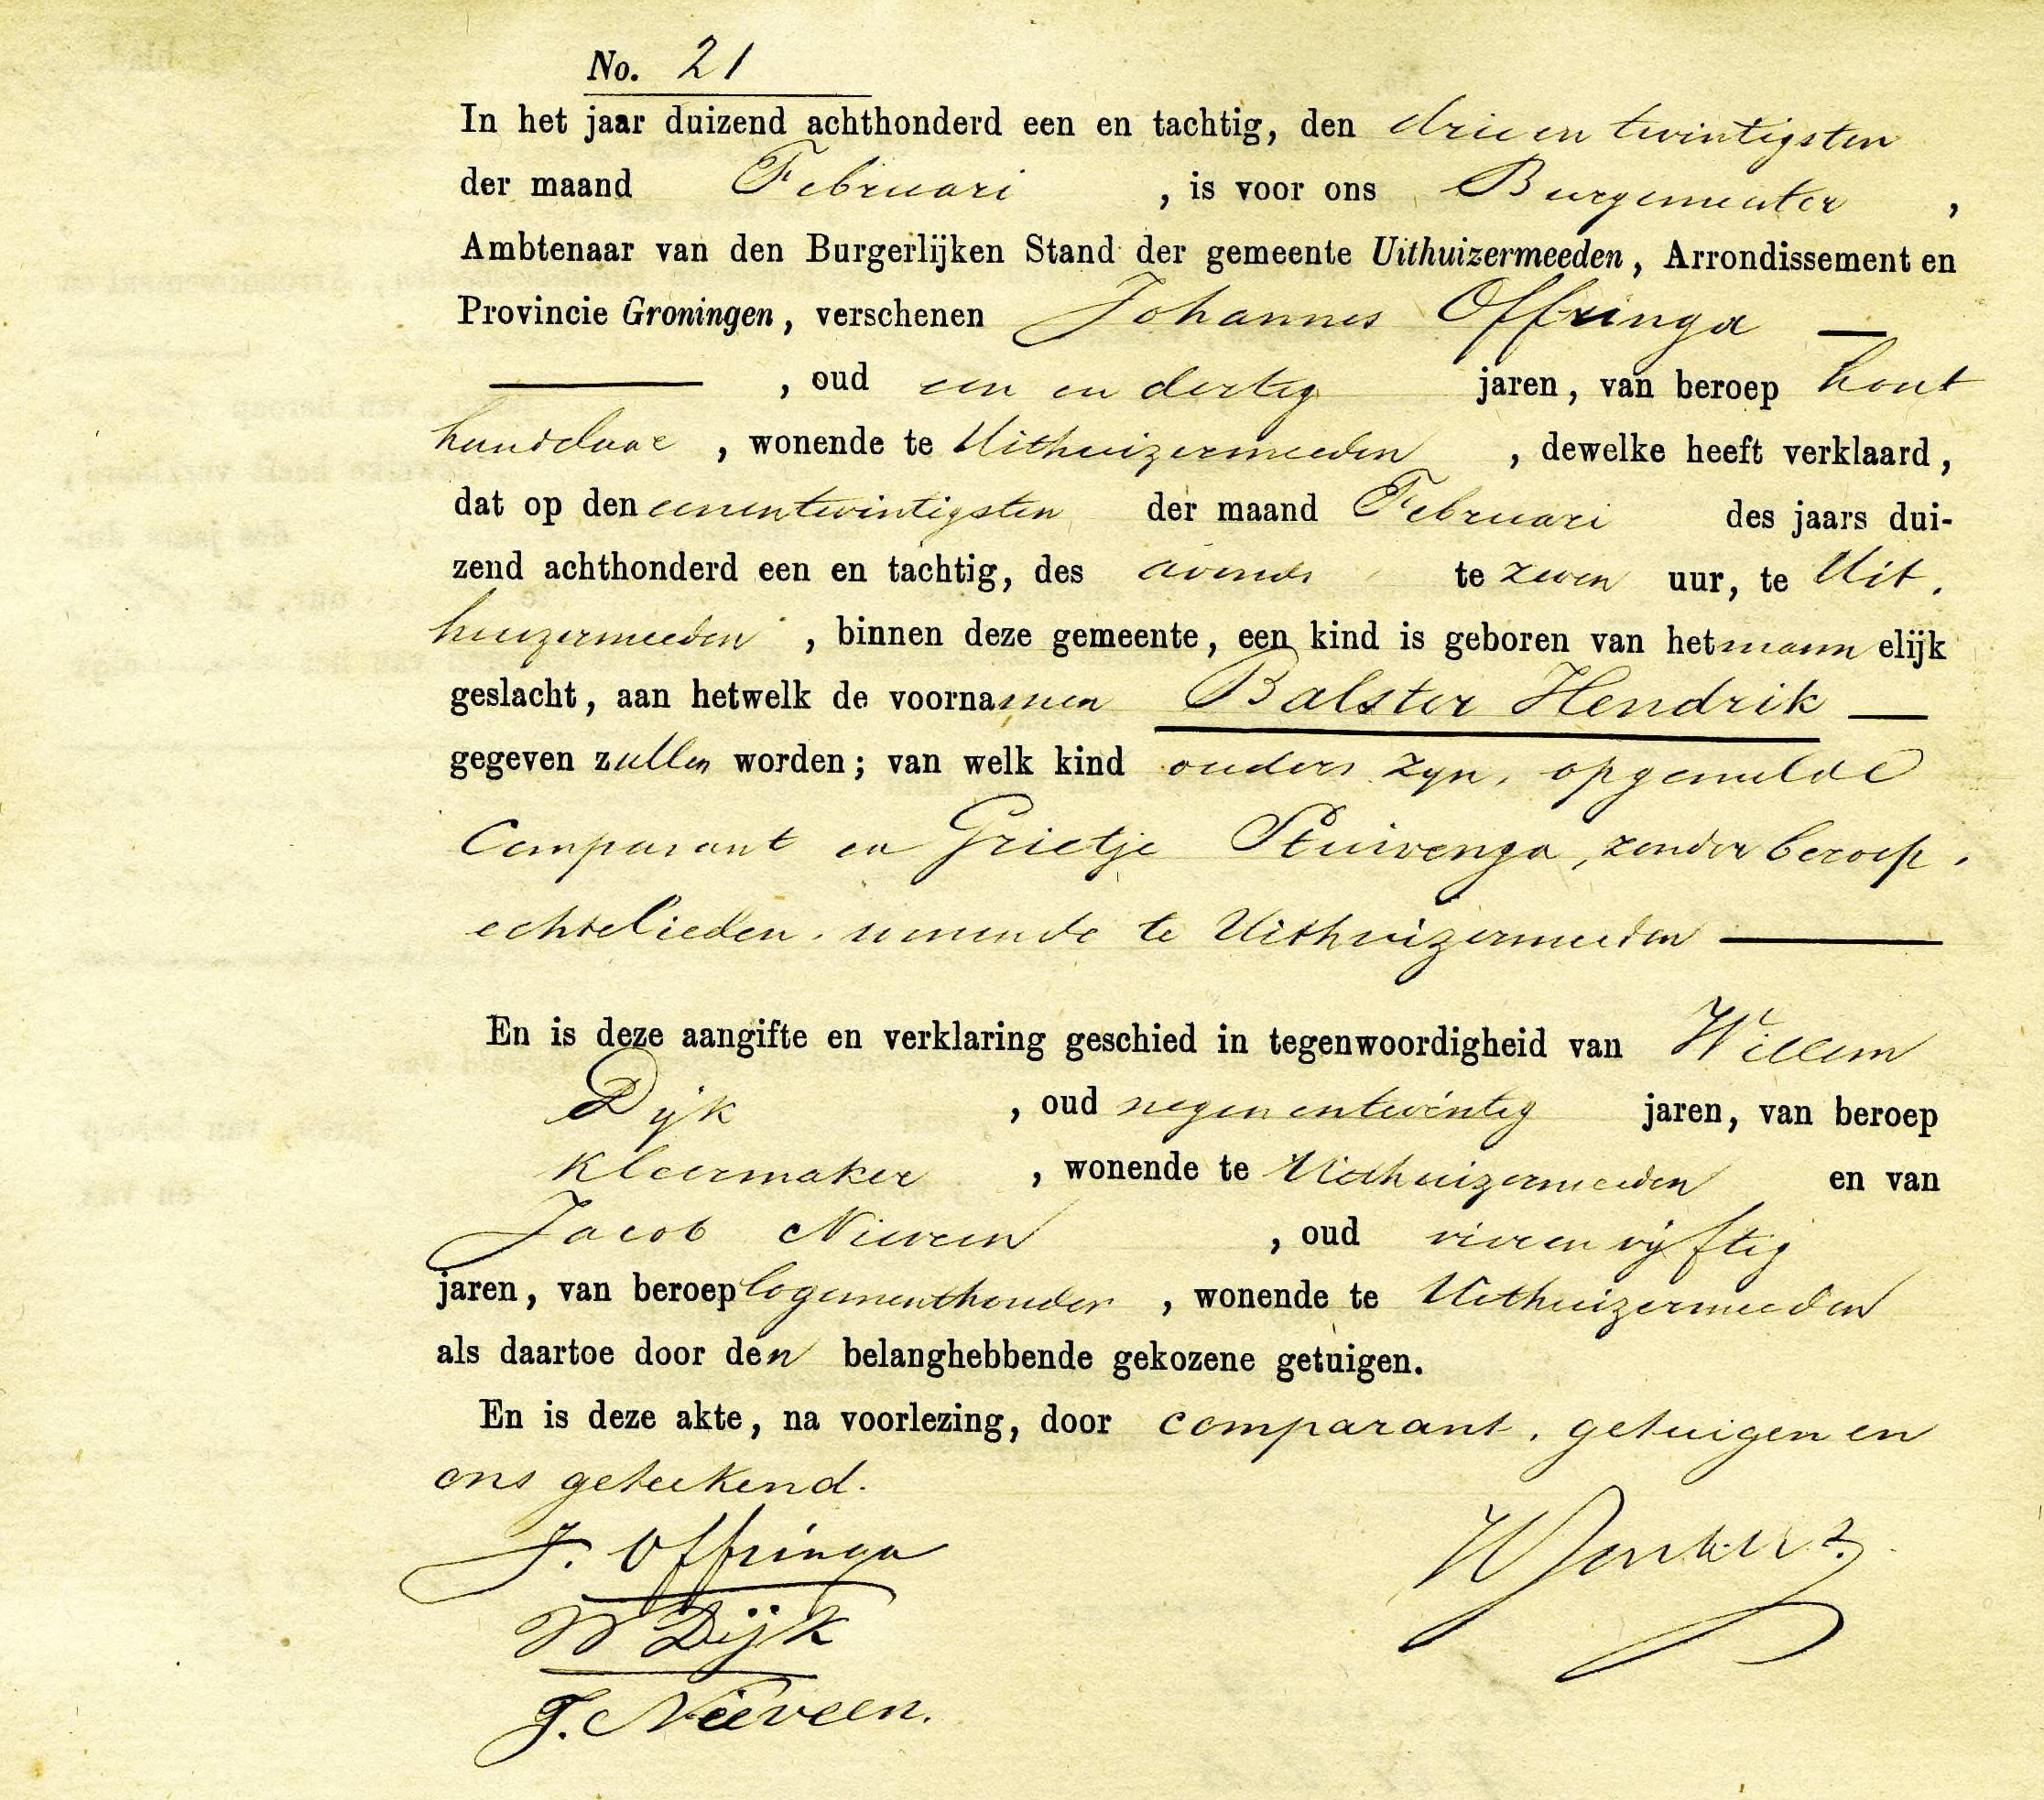 No. 21
In het jaar duizend achthonderd een en tachtig, den drie en twintigsten
der maand Februari , is voor ons Burgemeester ,
Ambtenaar van den Burgerlijken Stand der gemeente Uithuizermeeden, Arrondissement en
Provincie Groningen, verschenen Johannes Offringa —
— , oud een en dertig jaren, van beroep hout
handelaar , wonende te Uithuizermeeden , dewelke heeft verklaard,
dat op den eenentwintigsten der maand Februari des jaars dui-
zend achthonderd een en tachtig, des avonds te zeven uur, te Uit.
huizermeeden , binnen deze gemeente, een kind is geboren van het mannelijk
geslacht, aan hetwelk de voornamen Balster Hendrik —
gegeven zullen worden; van welk kind ouders zyn, opgemelde
Comparant en Grietje Stuivenga, zonder beroep,
echtelieden, wonende te Uithuizermeeden —
En is deze aangifte en verklaring geschied in tegenwoordigheid van Willem
Dijk , oud negenentwintig jaren, van beroep
Kleermaker , wonende te Uithuizermeeden en van
Jacob Nieveen , oud vierenvijftig
jaren, van beroep logementhouder , wonende te Uithuizermeeden
als daartoe door den belanghebbende gekozene getuigen.
En is deze akte, na voorlezing, door comparant, getuigen en
ons geteekend.
J. Offringa
W Dijk
J. Nieveen.